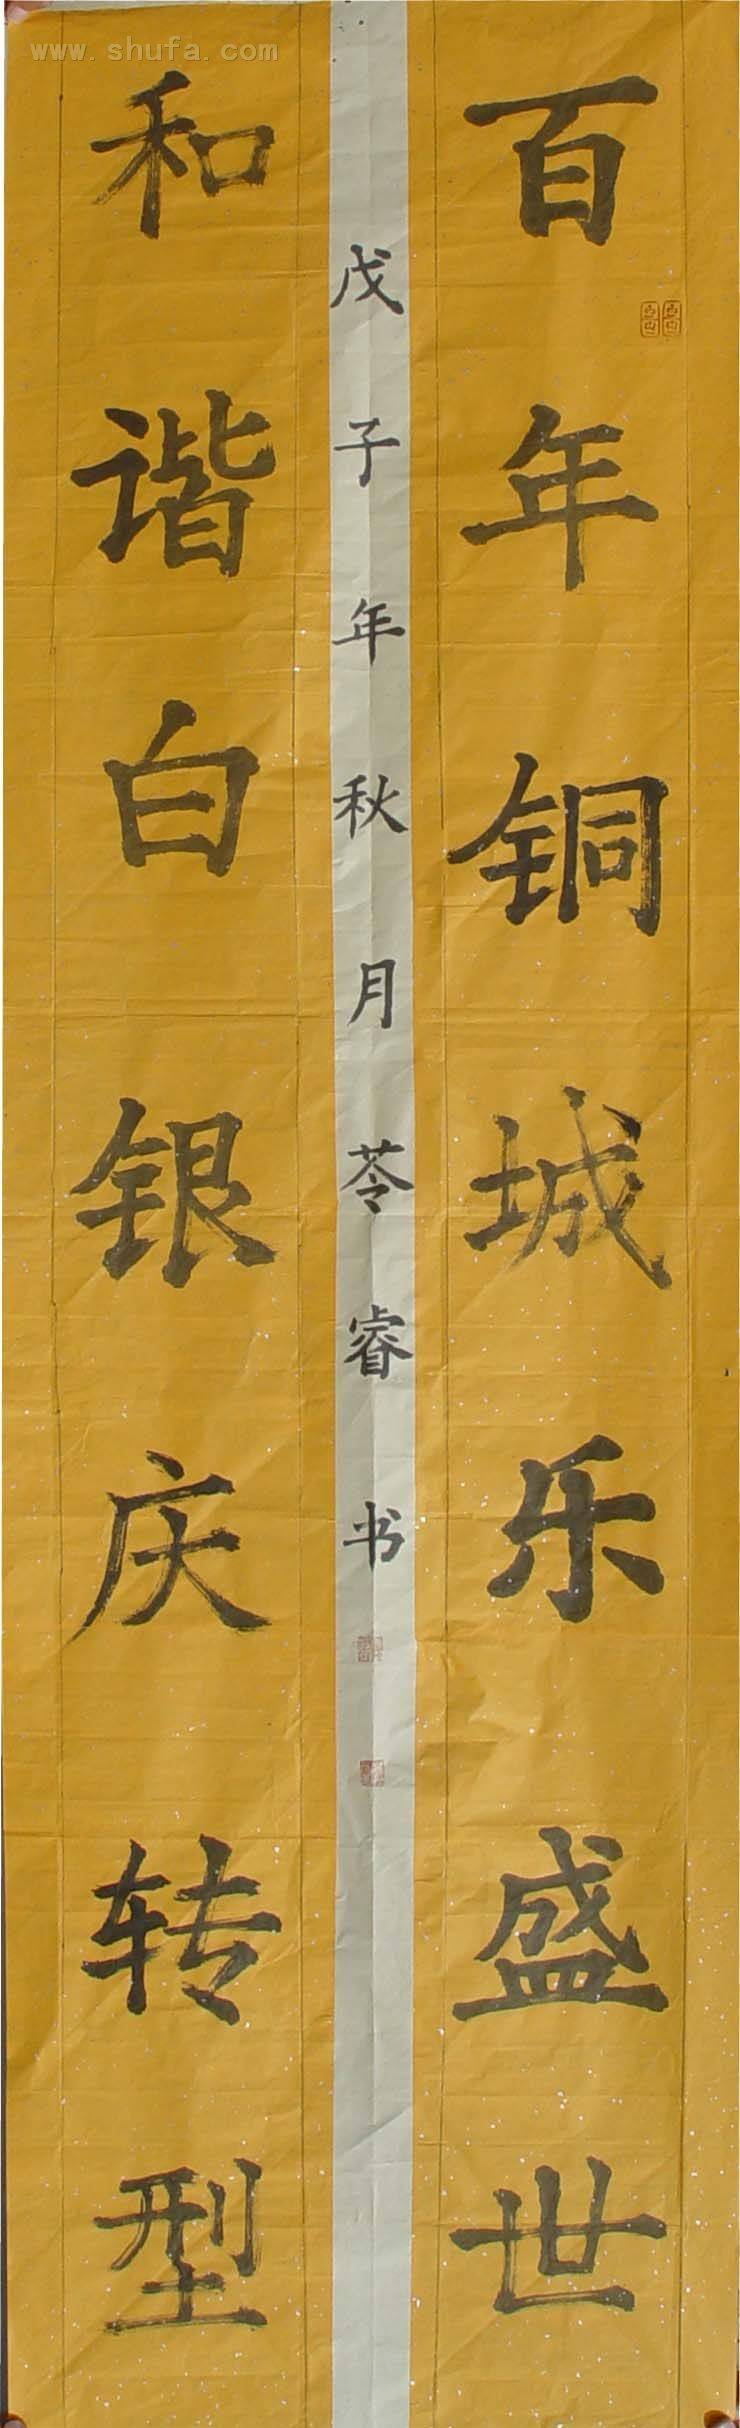 www.shufa.com
百年铜城乐盛世
戊子年秋月苓睿书
和谐白银庆转型